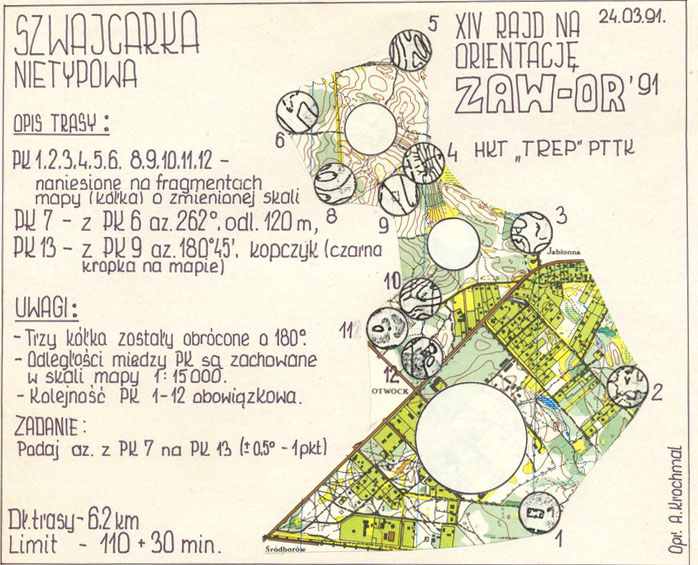 SZWAJCARKA
NIETYPOWA
OPIS TRASY:
PK 1,2,3,4,5,6. 8,9,10,11,12 -
naniesione na fragmentach
mapy (kółka) o zmienionej skali
PK 7 - z PK 6 az. 262°, odl. 120 m,
PK 13 - z PK 9 az. 180°45', kopczyk (czarna
kropka na mapie)
UWAGI:
- Trzy kółka zostały obrócone o 180°.
- Odległości między PK są zachowane
w skali mapy 1:15000.
- Kolejność PK 1-12 obowiązkowa.
ZADANIE:
Podaj az. z PK 7 na PK 13 (±0,5° - 1pkt)
Dł. trasy - 6.2 km
Limit - 110 + 30 min.
XIV RAJD NA
ORIENTACJĘ
ZAW-OR '91
24.03.91.
HKT „TREP” PTTK
5
6
4
8
9
3
Jabłonna
10
11
12
OTWOCK
2
1
Śródborów
Opr. A. Krochmal